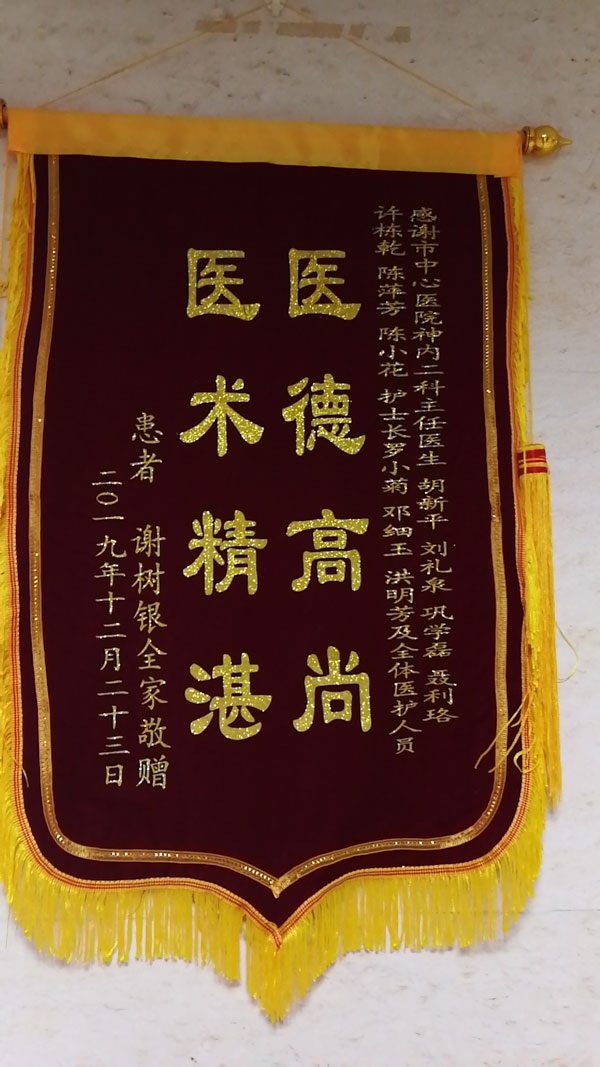 感谢市中心医院神内二科主任医生 胡新平 刘礼泉 巩学磊 聂利珞
许栋乾 陈萍芳 陈小花 护士长罗小菊 邓细玉 洪明芳及全体医护人员
医德高尚
医术精湛
患者 谢树银全家敬赠
二〇一九年十二月二十三日